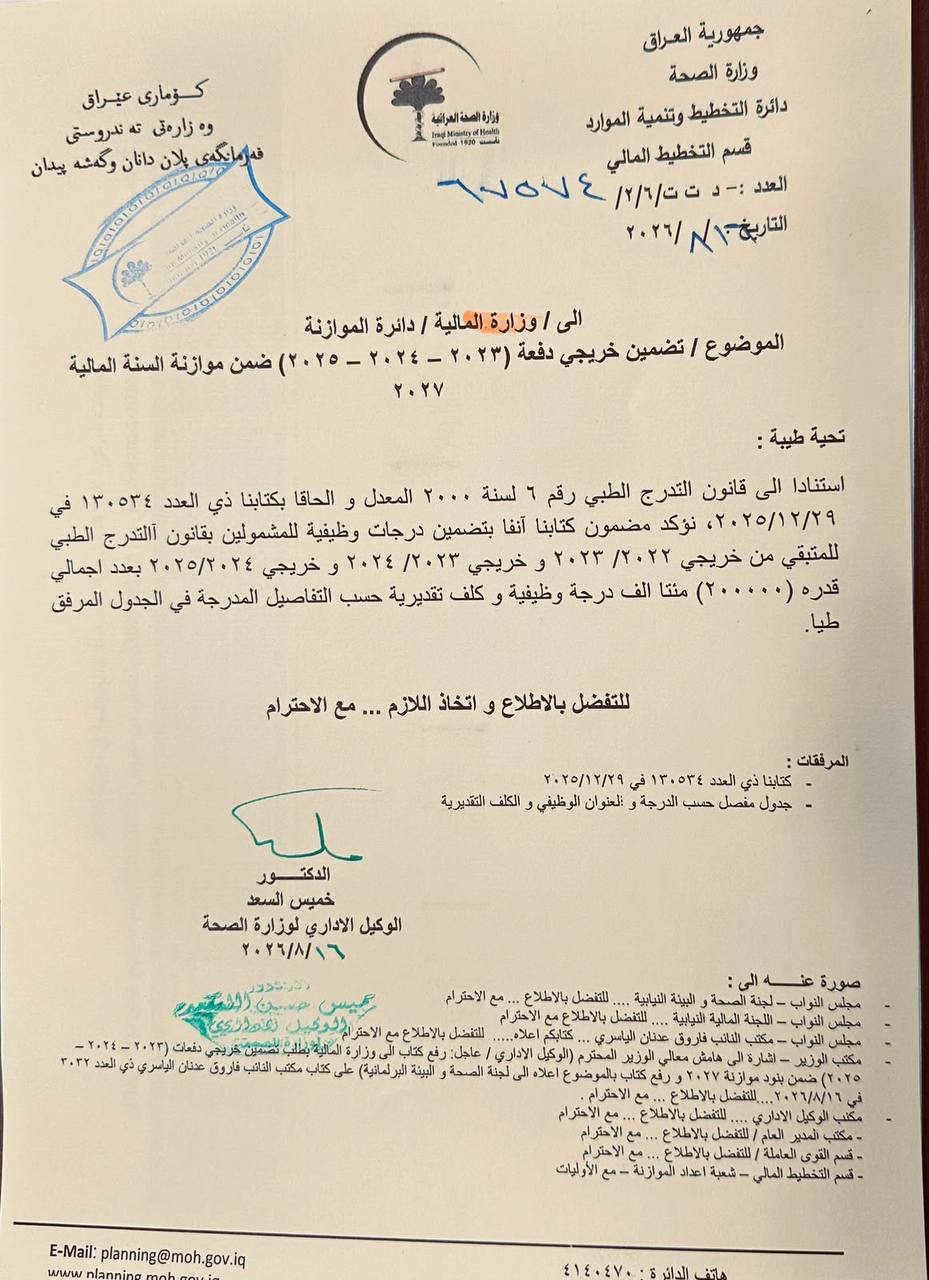 جمهورية العراق
وزارة الصحة
دائرة التخطيط وتنمية الموارد
قسم التخطيط المالي
العدد :- د ت ت/٢/٦/ ٦٧٥٧٤
التاريخ: /٨/ ٢٠٢٦
كۆماری عێراق
وه زاره‌تی ته ندروستی
فه‌رمانگه‌ی پلان دانان وگه‌شه پیدان
وزارة الصحة العراقية
Iraqi Ministry of Health
Founded 1920 تأسست
الى / وزارة المالية / دائرة الموازنة
الموضوع / تضمين خريجي دفعة (٢٠٢٣ – ٢٠٢٤ – ٢٠٢٥) ضمن موازنة السنة المالية
٢٠٢٧
تحية طيبة :
استنادا الى قانون التدرج الطبي رقم ٦ لسنة ٢٠٠٠ المعدل و الحاقا بكتابنا ذي العدد ١٣٠٥٣٤ في
٢٠٢٥/١٢/٢٩، نؤكد مضمون كتابنا آنفا بتضمين درجات وظيفية للمشمولين بقانون آالتدرج الطبي
للمتبقي من خريجي ٢٠٢٢/ ٢٠٢٣ و خريجي ٢٠٢٣/ ٢٠٢٤ و خريجي ٢٠٢٥/٢٠٢٤ بعدد اجمالي
قدره (٢٠٠٠٠٠) مئتا الف درجة وظيفية و كلف تقديرية حسب التفاصيل المدرجة في الجدول المرفق
طيا.
للتفضل بالاطلاع و اتخاذ اللازم ... مع الاحترام
المرفقات :
- كتابنا ذي العدد ١٣٠٥٣٤ في ٢٠٢٥/١٢/٢٩
- جدول مفصل حسب الدرجة و العنوان الوظيفي و الكلف التقديرية
الدكتـــــور
خميس السعد
الوكيل الاداري لوزارة الصحة
٢٠٢٦/٨/١٦
خميس حسين
الوكيل الاداري
صورة عنـــه الى :
- مجلس النواب – لجنة الصحة و البيئة النيابية .... للتفضل بالاطلاع ... مع الاحترام
- مجلس النواب – اللجنة المالية النيابية .... للتفضل بالاطلاع مع الاحترام
- مجلس النواب – مكتب النائب فاروق عدنان الياسري ... كتابكم اعلاه..... للتفضل بالاطلاع مع الاحترام
- مكتب الوزير – اشارة الى هامش معالي الوزير المحترم (الوكيل الاداري / عاجل: رفع كتاب الى وزارة المالية بطلب تضمين خريجي دفعات (٢٠٢٣ – ٢٠٢٤ –
٢٠٢٥) ضمن بنود موازنة ٢٠٢٧ و رفع كتاب بالموضوع اعلاه الى لجنة الصحة و البيئة البرلمانية) على كتاب مكتب النائب فاروق عدنان الياسري ذي العدد ٣٠٣٢
في ٢٠٢٦/٨/١٦....للتفضل بالاطلاع ... مع الاحترام .
- مكتب الوكيل الاداري .... للتفضل بالاطلاع ... مع الاحترام
- مكتب المدير العام / للتفضل بالاطلاع ... مع الاحترام
- قسم القوى العاملة / للتفضل بالاطلاع ... مع الاحترام
- قسم التخطيط المالي – شعبة اعداد الموازنة – مع الأوليات
E-Mail: planning@moh.gov.iq
www.planning.moh.gov.iq
هاتف الدائرة : ٤١٤٠٤٧٠